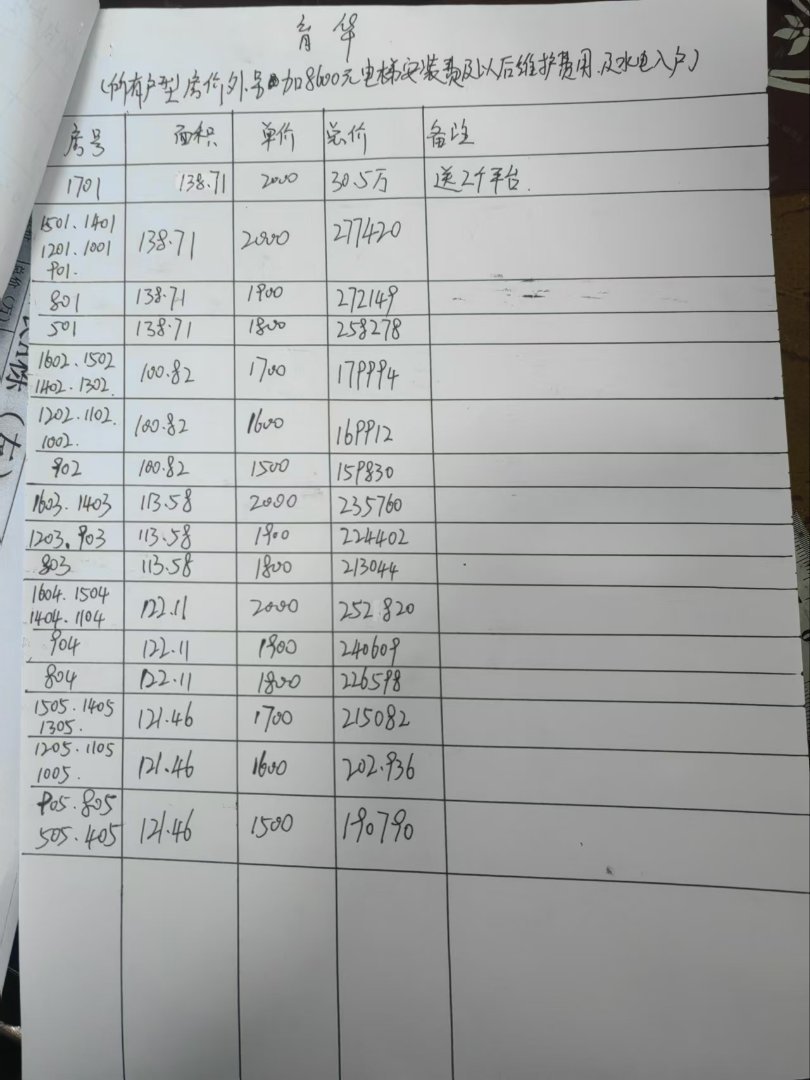 育华
(所有户型房价外另加8600元电梯安装费及以后维护费用.及水电入户)
房号 面积 单价 总价 备注
1701 138.71 2000 30.5万 送2个平台.
1501.1401
1201.1001 138.71 2000 277420
901.
801 138.71 1900 272149
501 138.71 1800 258278
1602.1502
1402.1302. 100.82 1700 179994
1202.1102.
1002. 100.82 1600 169912
902 100.82 1500 159830
1603.1403 113.58 2000 235760
1203.903 113.58 1900 224402
803 113.58 1800 213044
1604.1504
1404.1104 122.11 2000 252.820
904 122.11 1900 240609
804 122.11 1800 226598
1505.1405
1305. 121.46 1700 215082
1205.1105
1005. 121.46 1600 202.936
905.805
505.405 121.46 1500 190790